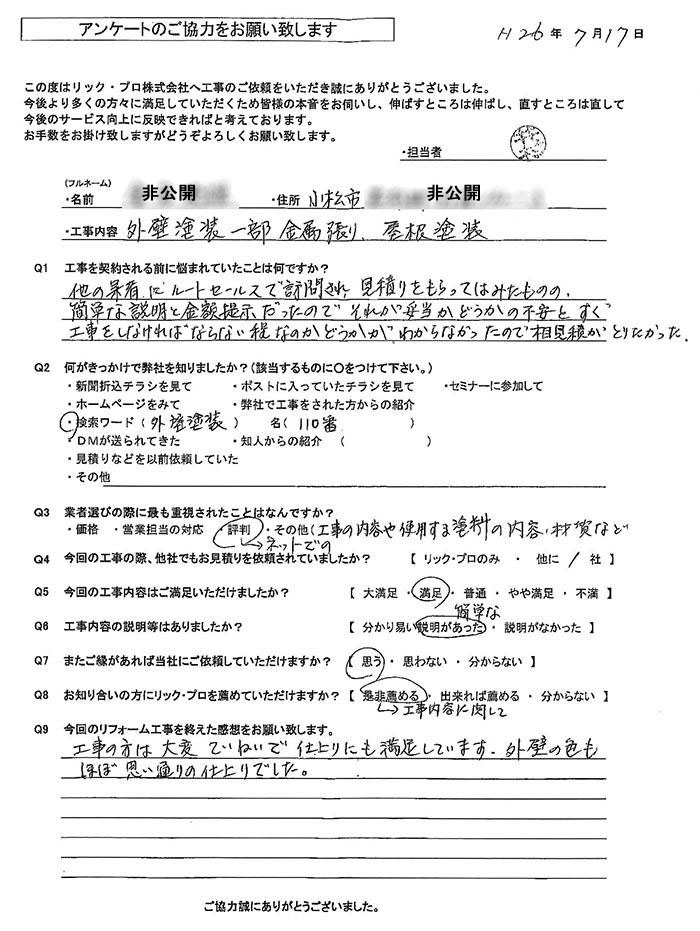 アンケートのご協力をお願い致します
H26年7月17日
この度はリック・プロ株式会社へ工事のご依頼をいただき誠にありがとうございました。
今後より多くの方々に満足していただくため皆様の本音をお伺いし、伸ばすところは伸ばし、直すところは直して
今後のサービス向上に反映できればと考えております。
お手数をお掛け致しますがどうぞよろしくお願い致します。
・担当者
(フルネーム)
・名前 非公開 ・住所 小松市 非公開
・工事内容 外壁塗装一部金属張り、屋根塗装
Q1 工事を契約される前に悩まれていたことは何ですか?
他の業者にルートセールスで訪問され、見積りをもらってはみたものの、
簡単な説明と金額提示だったので それが妥当かどうかの不安と すぐ
工事をしなければならない程なのかどうかがわからなかったので相見積がとりたかった。
Q2 何がきっかけで弊社を知りましたか?(該当するものに〇をつけて下さい。)
・新聞折込チラシを見て ・ポストに入っていたチラシを見て ・セミナーに参加して
・ホームページをみて ・弊社で工事をされた方からの紹介
・検索ワード(外壁塗装) 名(110番)
・DMが送られてきた ・知人からの紹介 ( )
・見積りなどを以前依頼していた
・その他
Q3 業者選びの際に最も重視されたことはなんですか?
・価格 ・営業担当の対応 ・評判 ・その他(工事の内容や使用する塗料の内容、材質など
→ネットでの
Q4 今回の工事の際、他社でもお見積りを依頼されていましたか? 【 リック・プロのみ ・ 他に 1 社 】
Q5 今回の工事内容はご満足いただけましたか? 【 大満足 ・ 満足 ・ 普通 ・ やや満足 ・ 不満 】
簡単な
Q6 工事内容の説明等はありましたか? 【 分かり易い説明があった ・ 説明がなかった 】
Q7 またご縁があれば当社にご依頼していただけますか? 【 思う ・ 思わない ・ 分からない 】
Q8 お知り合いの方にリック・プロを薦めていただけますか? 【 是非薦める ・ 出来れば薦める ・ 分からない 】
→工事内容に関して
Q9 今回のリフォーム工事を終えた感想をお願い致します。
工事の方は大変ていねいで仕上りにも満足しています。外壁の色も
ほぼ思い通りの仕上りでした。
ご協力誠にありがとうございました。